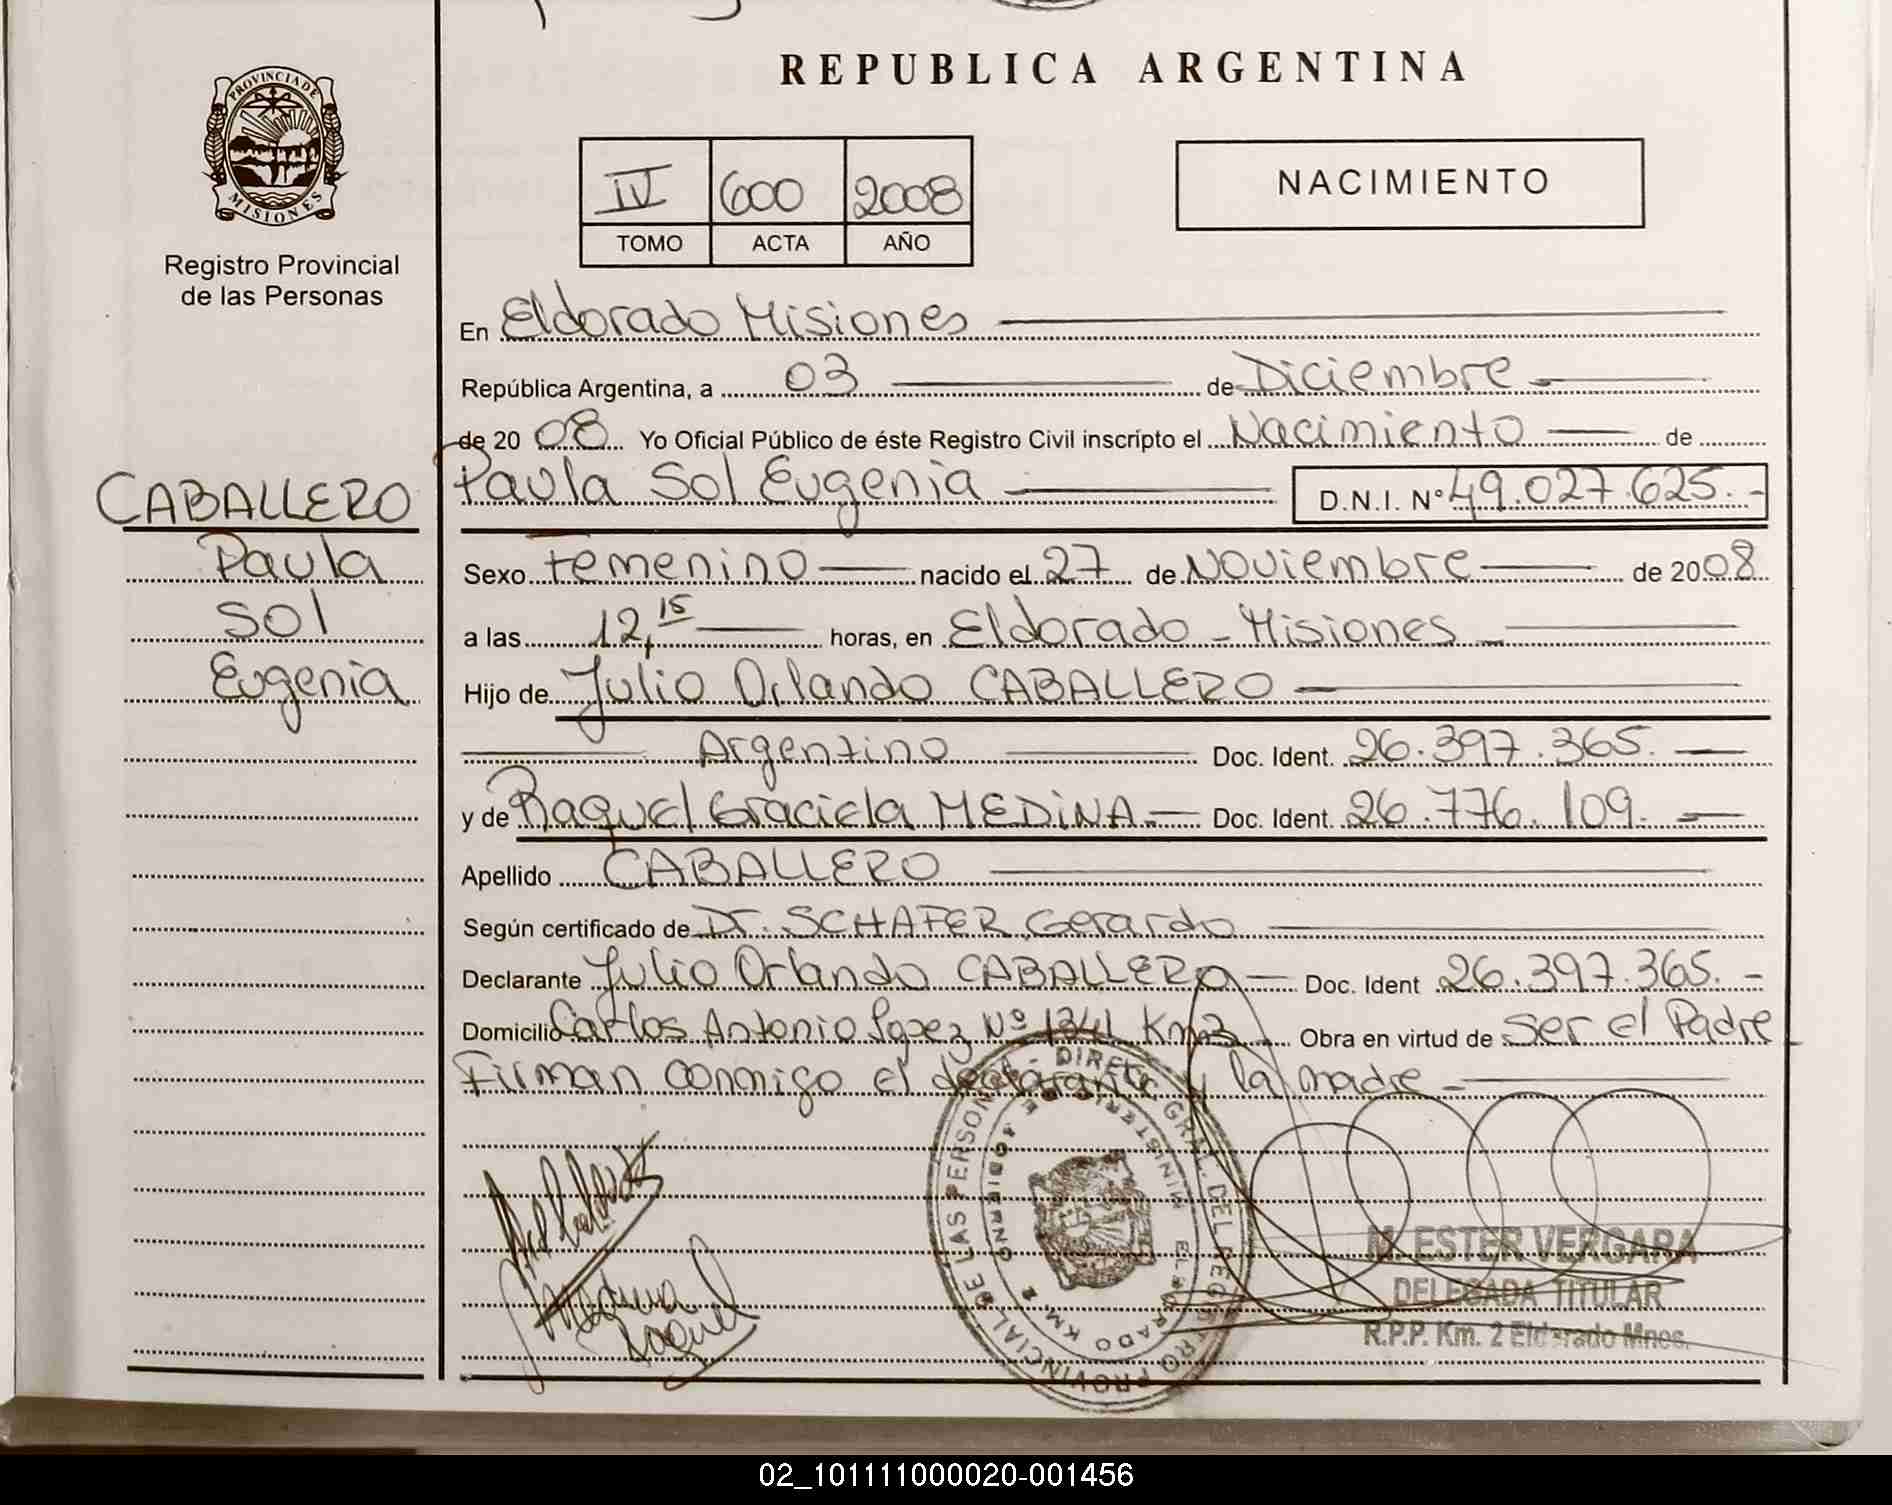 PROVINCIA DE
MISIONES
Registro Provincial
de las Personas
CABALLERO
Paula
Sol
Eugenia
REPUBLICA ARGENTINA
IV 600 2008
TOMO ACTA AÑO
NACIMIENTO
En Eldorado Misiones
República Argentina, a 03 de Diciembre
de 20 08 Yo Oficial Público de éste Registro Civil inscripto el Nacimiento de
Paula Sol Eugenia D.N.I. Nº 49.027.625.-
Sexo Femenino nacido el 27 de Noviembre de 2008
a las 12,15 horas, en Eldorado - Misiones
Hijo de Julio Orlando CABALLERO
Argentino Doc. Ident. 26.397.365.
y de Raquel Graciela MEDINA Doc. Ident. 26.776.109.
Apellido CABALLERO
Según certificado de Dr. SCHAFER, Gerardo
Declarante Julio Orlando CABALLERO Doc. Ident 26.397.365.-
Domicilio Carlos Antonio Lopez Nº 1341 Km2 Obra en virtud de Ser el Padre
Firman conmigo el declarante y la madre
Medina
Raquel
DIREC. GRAL. DEL REGISTRO PROVINCIAL DE LAS PERSONAS
MINISTERIO DE GOBIERNO
ELDORADO KM 2
M. ESTER VERGARA
DELEGADA TITULAR
R.P.P. Km. 2 Eldorado Mnes.
02_101111000020-001456